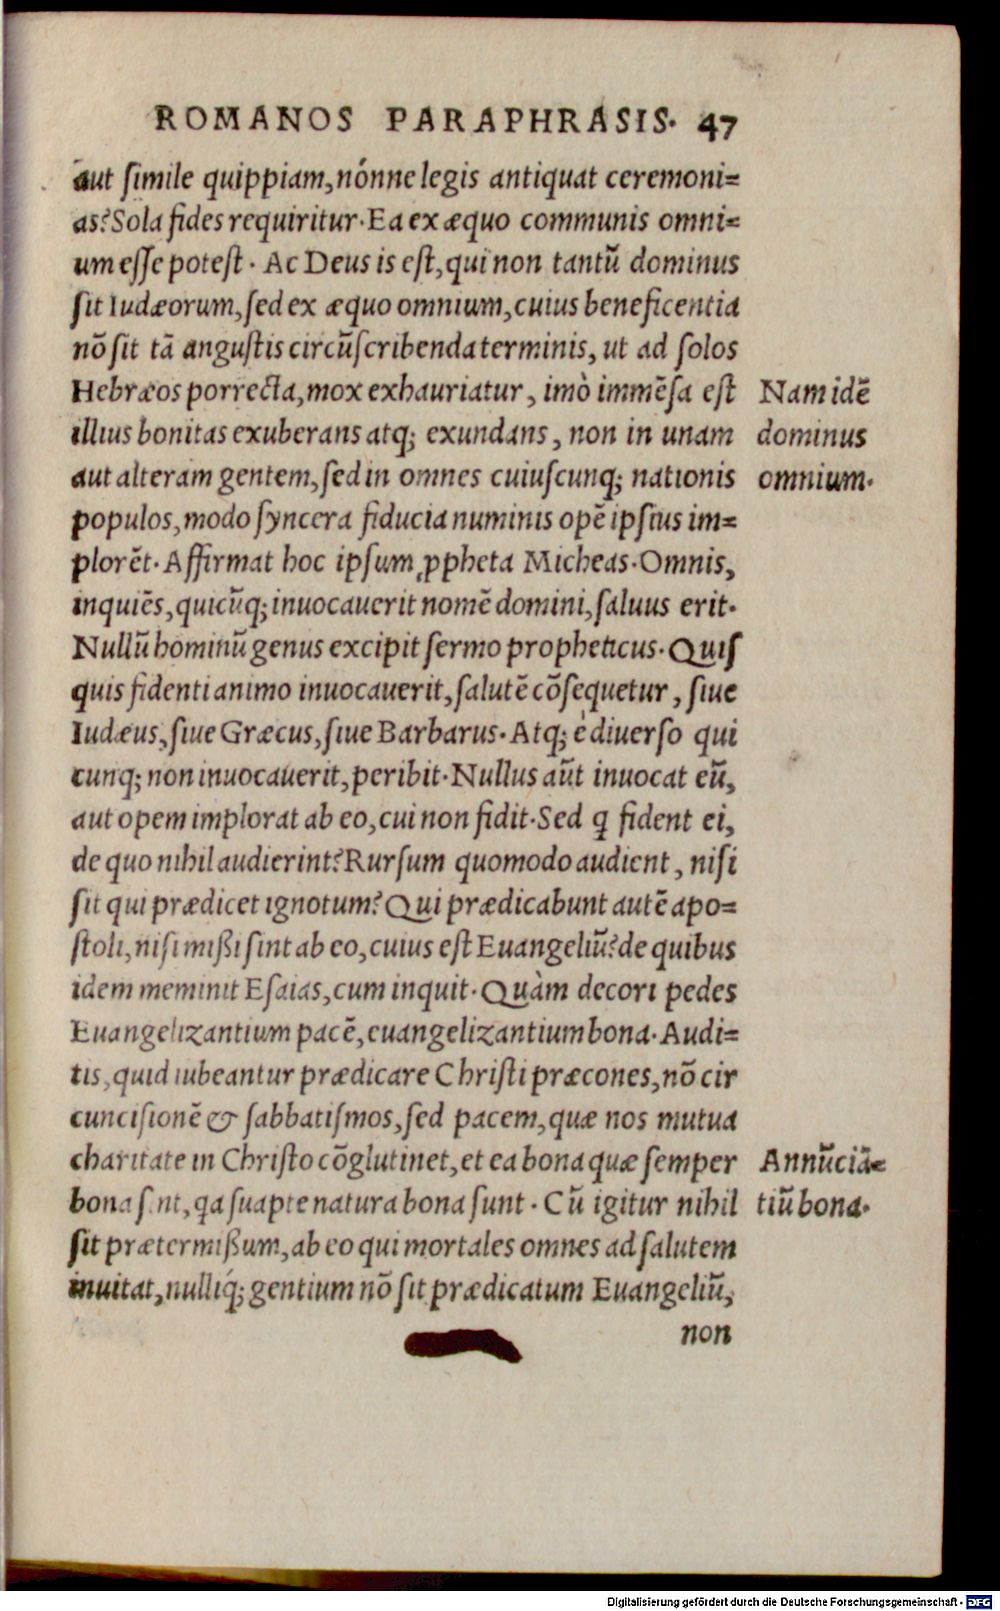 ROMANOS PARAPHRASIS. 47
aut ſimile quippiam, nónne legis antiquat ceremoni=
as? Sola fides requiritur. Ea ex æquo communis omni=
um eſſe poteſt. Ac Deus is eſt, qui non tantũ dominus
ſit Iudæorum, ſed ex æquo omnium, cuius beneficentia
nõ ſit tã anguſtis circũſcribenda terminis, ut ad ſolos
Hebræos porrecta, mox exhauriatur, imò immẽſa eſt
Nam idẽ
illius bonitas exuberans atq; exundans, non in unam
dominus
aut alteram gentem, ſed in omnes cuiuſcunq; nationis
omnium.
populos, modo ſyncera fiducia numinis opẽ ipſius im=
plorẽt. Affirmat hoc ipſum ꝓpheta Micheas. Omnis,
inquiẽs, quicũq; inuocauerit nomẽ domini, ſaluus erit.
Nullũ hominũ genus excipit ſermo propheticus. Quiſ
quis fidenti animo inuocauerit, ſalutẽ cõſequetur, ſiue
Iudæus, ſiue Græcus, ſiue Barbarus. Atq; è diuerſo qui
cunq; non inuocauerit, peribit. Nullus aũt inuocat eũ,
aut opem implorat ab eo, cui non fidit. Sed q fident ei,
de quo nihil audierint? Rurſum quomodo audient, niſi
ſit qui prædicet ignotum? Qui prædicabunt autẽ apo=
ſtoli, niſi mißi ſint ab eo, cuius eſt Euangeliũ? de quibus
idem meminit Eſaias, cum inquit. Quàm decori pedes
Euangelizantium pacẽ, euangelizantium bona. Audi=
tis, quid iubeantur prædicare Chriſti præcones, nõ cir
cunciſionẽ & ſabbatiſmos, ſed pacem, quæ nos mutua
charitate in Chriſto cõglutinet, et ea bona quæ ſemper
Annũciã=
bona ſint, qa ſuapte natura bona ſunt. Cũ igitur nihil
tiũ bona.
ſit prætermißum, ab eo qui mortales omnes ad ſalutem
inuitat, nulliq́; gentium nõ ſit prædicatum Euangeliũ,
non
Digitalisierung gefördert durch die Deutsche Forschungsgemeinschaft - DFG